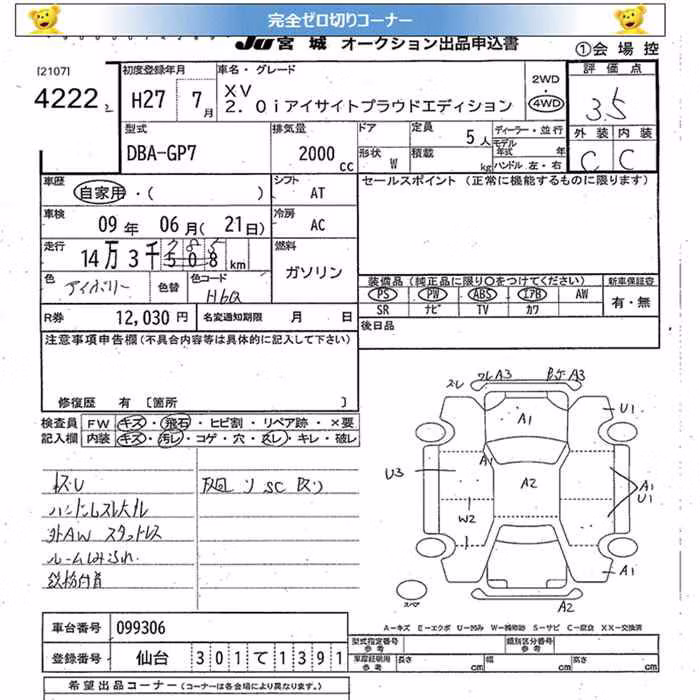 完全ゼロ切りコーナー
Ju 宮 城 オークション出品申込書
①会 場 控
[2107]
4222 2
初度登録年月
H27 7月
車名・グレード
XV
2.0iアイサイトプラウドエディション
2WD
4WD
評 価 点
3.5
外 装 内 装
C C
型式
DBA-GP7
排気量
2000 cc
ドア
形状 W
定員 5人
積載 kg
ディーラー・並行
モデル年式 年
ハンドル 左・右
車歴
自家用・( )
シフト
AT
セールスポイント (正常に機能するものに限ります)
車検
09 年 06 月( 21 日)
冷房
AC
走行
14 万 3 千 508 km
285
燃料
ガソリン
色
アイボリー
色替
色コード
H6Q
装備品 (純正品に限り○をつけてください)
新車保証書
PS PW ABS エアB AW
SR ナビ TV カワ
有・無
R券 12,030 円 名変通知期限 月 日
後日品
注意事項申告欄(不具合内容等は具体的に記入して下さい)
修復歴 有 [箇所 ]
検査員 FW キズ・飛石・ヒビ割・リペア跡・×要
記入欄 内装 キズ・汚レ・コゲ・穴・スレ・キレ・破レ
スレ ワレA3 A3
A1 U1
U3 A1 A2 A1 U1
W2
A1
スペア A2
A-キズ E-エクボ U-凹み W-補修跡 S-サビ C-腐食 XX-交換済
ハンドルスレ大
外AW スタッドレス
車台番号 099306
登録番号 仙台 301て1391
型式指定番号 参考
類別区分番号 参考
車庫証明用 参考 長さ 幅 高さ
希望出品コーナー (コーナーは各会場により異なります。)